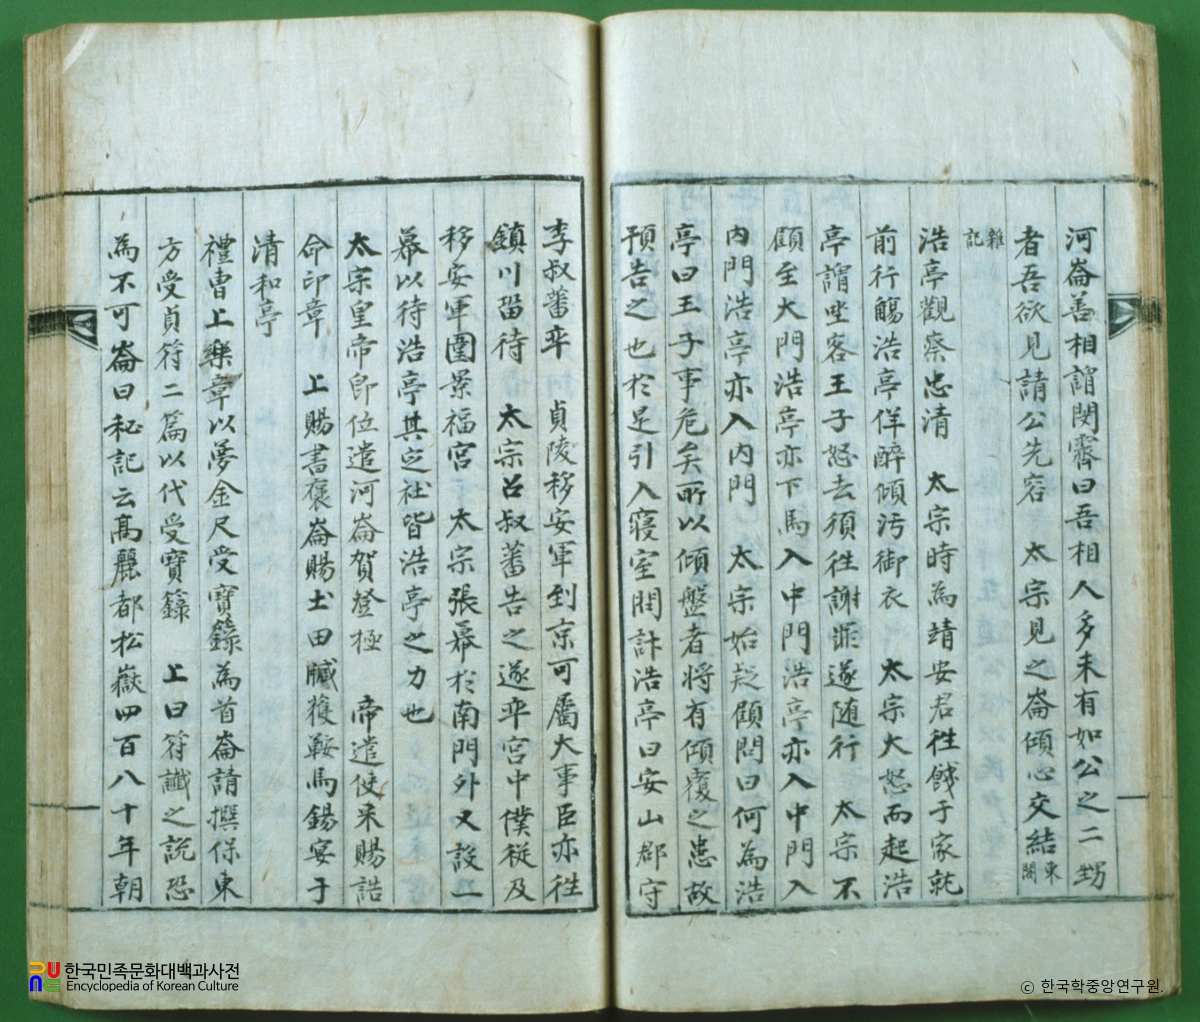 河崙善相謂閔霽曰吾相人多未有如公之二甥
者吾欲見請公先容 太宗見之崙傾心交結東閣
雜記
浩亭觀察忠清 太宗時為靖安君往餞于家就
前行觴浩亭佯醉傾汚御衣 太宗大怒而起浩
亭謂坐客王子怒去須往謝罪遂随行 太宗不
顧至大門浩亭亦下馬入中門浩亭亦入中門入
内門浩亭亦入内門 太宗始疑顧問曰何為浩
亭曰王子事危矣所以傾盤者將有傾覆之患故
預告之也於是引入寢室問計浩亭曰安山郡守
李叔蕃率 貞陵移安軍到京可屬大事臣亦往
鎮川留待 太宗召叔蕃告之遂率宮中僕従及
移安軍圍景福宮 太宗張幕於南門外又設一
幕以待浩亭其定社皆浩亭之力也
太宗皇帝即位遣河崙賀登極 帝遣使来賜誥
命印章 上賜書褒崙賜土田臧獲鞍馬錫宴于
清和亭
禮曹上樂章以夢金尺受寶籙為首崙請撰保東
方受貞符二篇以代受寶籙 上曰符讖之說恐
為不可崙曰秘記云高麗都松嶽四百八十年朝
한국민족문화대백과사전
Encyclopedia of Korean Culture
ⓒ 한국학중앙연구원.